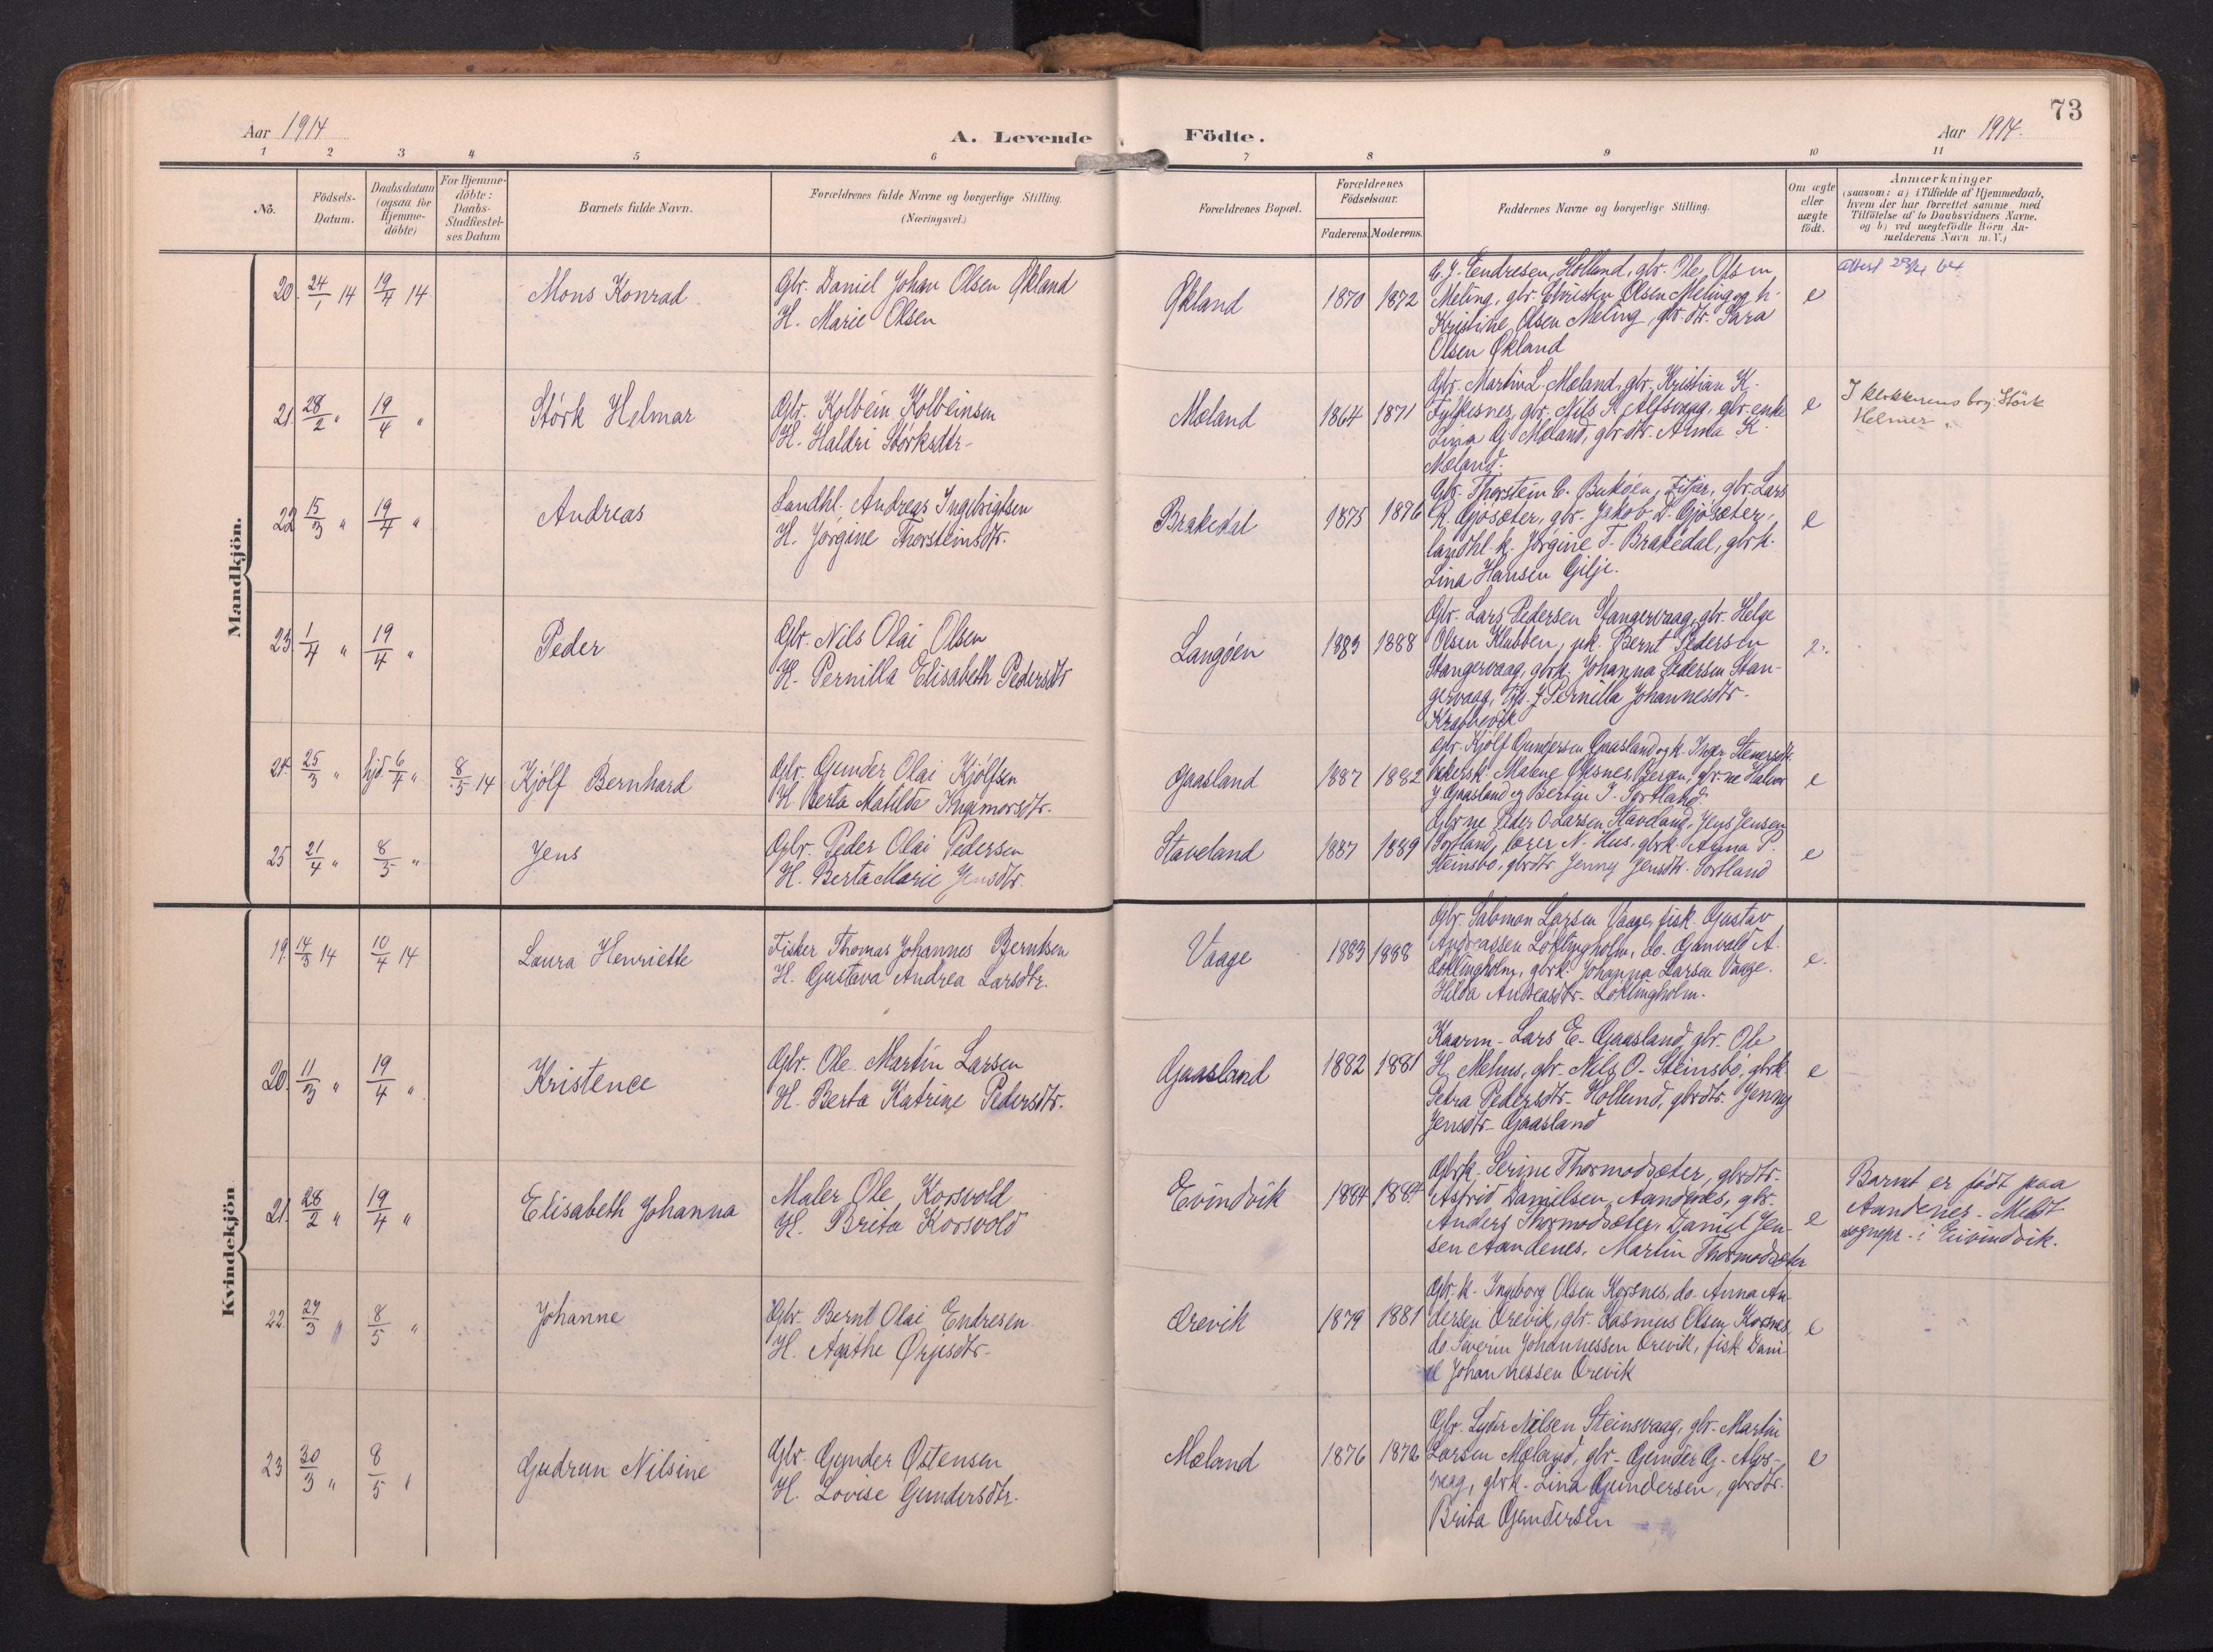 73
Aar 1914
A. Levende Födte.
Aar 1914.
1 2 3 4 5 6 7 8 9 10 11
No.
Födsels-
Datum.
Daabsdatum
(ogsaa for
Hjemme-
döbte)
For Hjemme-
döbte:
Daabs-
Stadfæstel-
ses Datum
Barnets fulde Navn.
Forældrenes fulde Navne og borgerlige Stilling.
(Næringsvei.)
Forældrenes Bopæl.
Forældrenes
Födselsaar.
Faderens. Moderens.
Faddernes Navne og borgerlige Stilling.
Om ægte
eller
uægte
födt.
Anmærkninger
(saasom: a) i Tilfælde af Hjemmedaab,
hvem der har forrettet samme med
Tilföielse af to Daabsvidners Navne.
og b) ved uægtefödte Börn An-
melderens Navn m. V.)
Mandkjön.
20. 24/1 14 19/4 14
Mons Konrad
Gbr. Daniel Johan Olsen Økland
H. Marie Olsen
Økland
1870 1872
E. J. Endresen, Holland, gbr. Ole Olsen
Meling, gbr. Olsen Meling og h.
Kristine Olsen Meling, gbr. dtr. Sara
Olsen Økland
e
Attest 64
21. 28/2 " 19/4 "
Størk Helmar
Gbr. Kolbein Kolbeinsen
H. Haldri Størksdtr.
Mæland
1864 1871
Gbr. Martin L. Mæland, gbr. Kristian K.
Fylkesnes, gbr. Nils S. Alfsvaag, gbr. enke
Lina G. Mæland, gbr. dtr. Anna K.
Mæland.
e
I klokkerens bog: Störk
Helmer.
22 15/3 " 19/4 "
Andreas
Landhl. Andreas Ingebrigtsen
H. Jørgine Thorsteinsdtr.
Brakedal
1875 1876
Gbr. Thorstein E. Bukøen, Fitjar, gbr. Lars
R. Gjøsæter, gbr. Jakob L. Gjøsæter,
landhl. k. Jørgine T. Brakedal, gbrk.
Lina Hansen Gilje.
e
23. 1/4 " 19/4 "
Peder
Gbr. Nils Olai Olsen
H. Pernilla Elisabeth Pedersdtr
Langøen
1883 1888
Gbr. Lars Pedersen Stangervaag, gbr. Helge
Olsen Klubben, Bernt Pedersen
Stangervaag, gbrk. Johanna Pedersen Stan-
gervaag, Pernilla Johannesdtr.
Krabbevik
e.
24. 25/3 " hjd. 6/4 " 8/5 14
Kjølf Bernhard
Gbr. Gunder Olai Kjølfsen
H. Berta Matilde Ingemorsdtr.
Gaasland
1887 1882
Gbr. Kjølf Gundersen Gaasland og k. Inger
Malene Økesnes, Bergen, gbr.ne
J. Gaasland og Bertin I. Sortland.
e
25 21/4 " 8/5 "
Jens
Gbr. Peder Olai Pedersen
H. Berta Marie Jensdtr.
Staveland
1887 1889
Gbr.ne Peder O. Larsen Staveland, Jens Jensen
Sortland, lærer N. Hus, gbrk. Anna P.
Steinsbø, gbrdtr. Jenny Jensdtr. Sortland
e
Kvindekjön
19. 14/3 14 10/4 14
Laura Henriette
Fisker Thomas Johannes Berntsen
H. Gustava Andrea Larsdtr.
Vaage
1883 1888
Gbr. Salomon Larsen Vaage, fisk. Gustav
Andreassen Løklingholm, do. Gunvald A.
Løklingholm, gbrk. Johanna Larsen Vaage.
Hilda Andreasdtr. Løklingholm.
e.
20. 11/3 " 19/4 "
Kristence
Gbr. Ole Martin Larsen
H. Berta Katrine Pedersdtr.
Gaasland
1882 1881
Kaarm. Lars E. Gaasland, gbr. Ole
H. Mehus, gbr. Nils O. Steinsbø, gbrk.
Petra Pedersdtr. Hollund, gbrdtr. Jenny
Jensdtr. Gaasland
e
21. 28/2 " 19/4 "
Elisabeth Johanna
Maler Ole Korsvold
H. Brita Korsvold
Evindvik
1884 1884
Gbrk. Serine Thormodsæter, gbrdtr.
Astrid Danielsen, Aandenes, gbr.
Anders Thormodsæter, Daniel Jen-
sen Aandenes, Martin Thormodsæter
e
Barnet er født paa
Aandenes. Meldt
sognepr. i Eivindvik.
22. 27/3 " 8/5 "
Johanne
Gbr. Bernt Olai Endresen
H. Agathe Ørjesdtr.
Ørevik
1879 1881
Gbr. k. Ingeborg Olsen Korsnes, do. Anna An-
dersen Ørevik, gbr. Rasmus Olsen Korsnes,
do. Siverin Johannessen Ørevik, fisk Dani-
el Johannessen Ørevik
e
23 30/3 " 8/5 "
Gudrun Nilsine
Gbr. Gunder Østensen
H. Lovise Gundersdtr.
Mæland
1876 1872
Gbr. Lyder Nilsen Steinsvaag, gbr. Martin
Larsen Mæland, gbr. Gunder G. Alvs-
vaag, gbrk. Lina Gundersen, gbrdtr.
Brita Gundersen
e